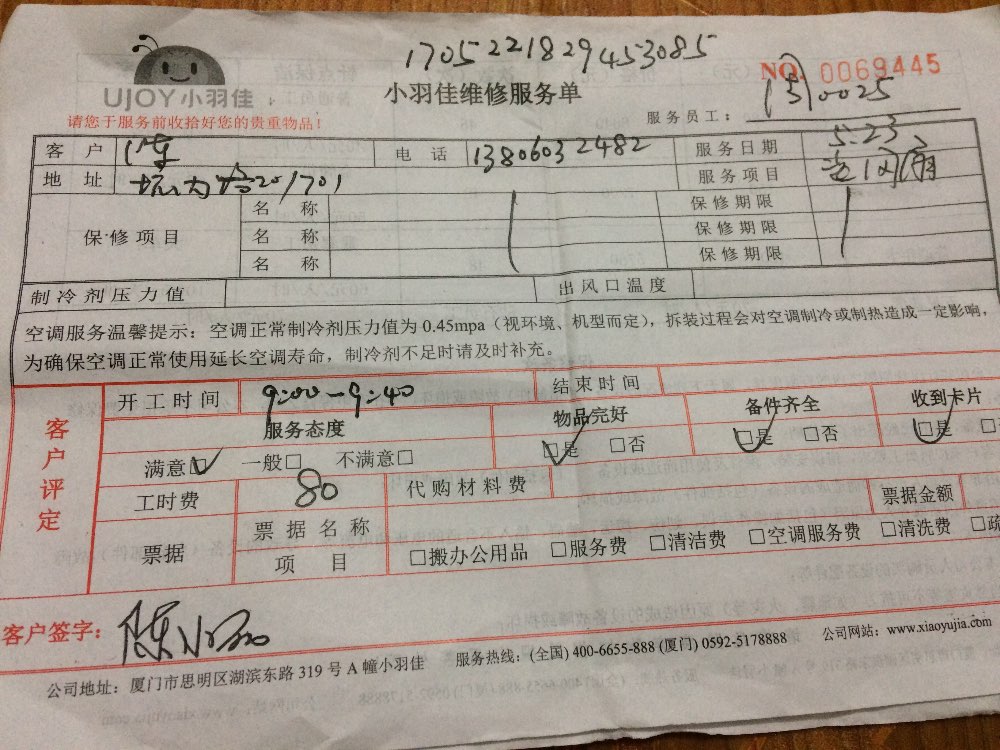 170522182945 3085
UJOY小羽佳
小羽佳维修服务单
NO. 0069445
请您于服务前收拾好您的贵重物品！
服务员工： 0025
客 户 陈 电 话 13806032482 服务日期 5.23
地 址 坑内路201701 服务项目
保修项目 名 称 保修期限
名 称 保修期限
名 称 保修期限
制冷剂压力值 出风口温度
空调服务温馨提示：空调正常制冷剂压力值为 0.45mpa（视环境、机型而定），拆装过程会对空调制冷或制热造成一定影响，
为确保空调正常使用延长空调寿命，制冷剂不足时请及时补充。
客户评定
开工时间 9:00-9:40 结束时间
服务态度 物品完好 备件齐全 收到卡片
满意☑ 一般□ 不满意□ ☑是 □否 ☑是 □否 ☑是 □
工时费 80 代购材料费
票据 票据名称 票据金额
项 目 □搬办公用品 □服务费 □清洁费 □空调服务费 □清洗费 □疏
客户签字： 陈
公司地址：厦门市思明区湖滨东路 319 号 A 幢小羽佳 服务热线：(全国) 400-6655-888 (厦门) 0592-5178888 公司网站：www.xiaoyujia.com